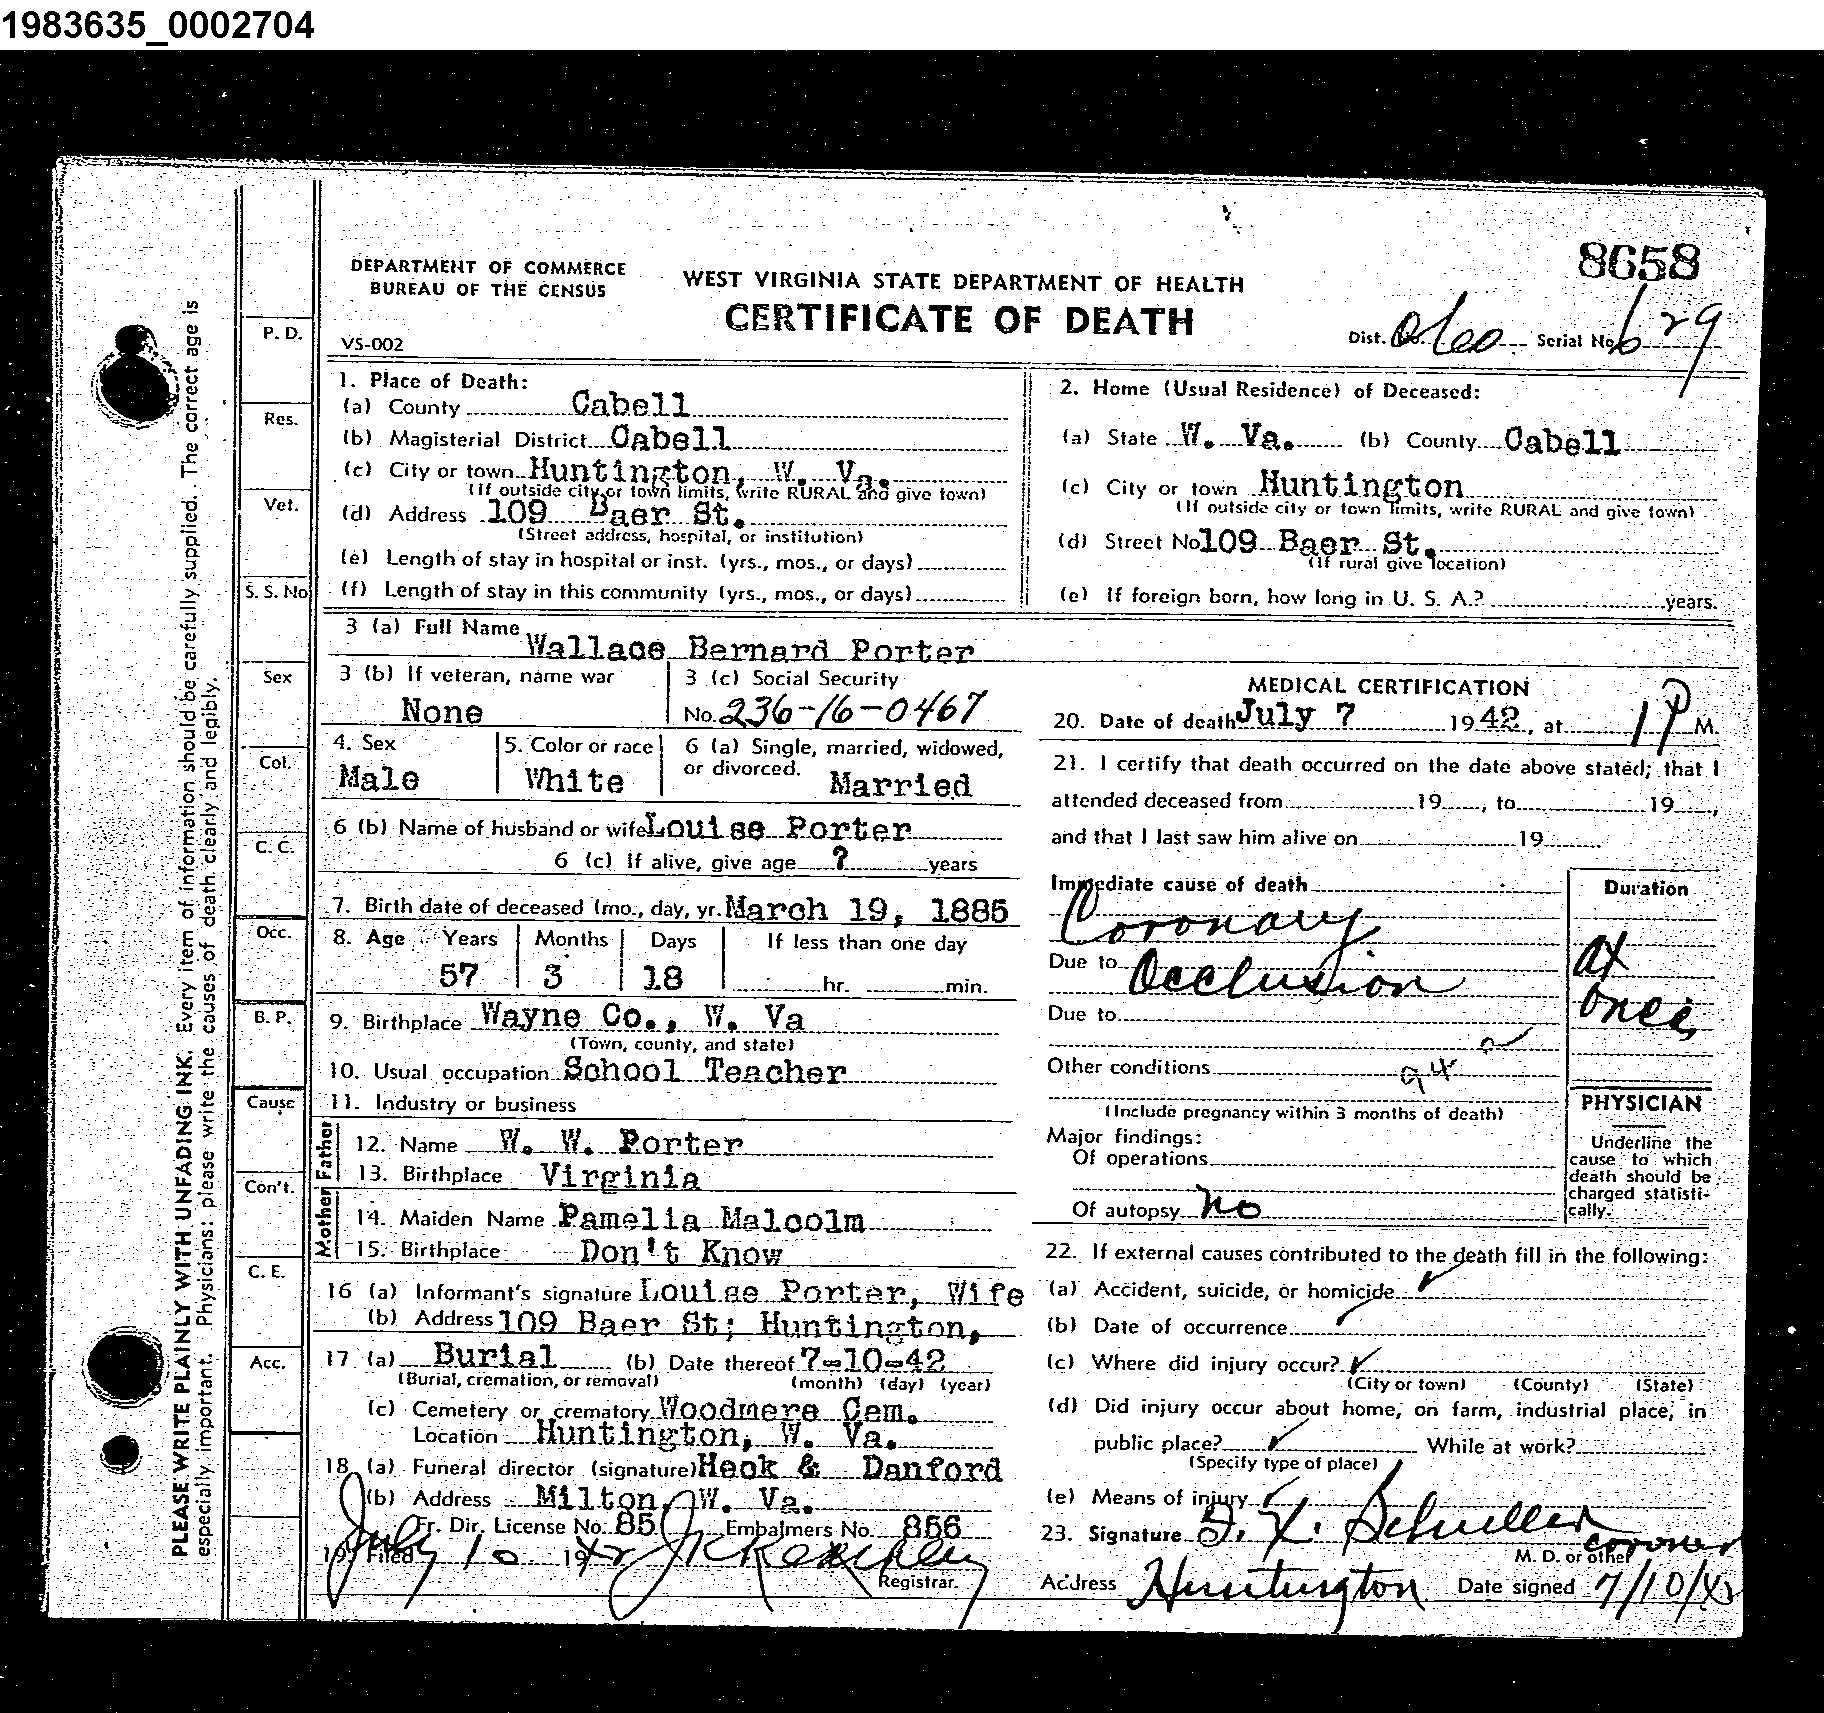 1983635_0002704
8658
DEPARTMENT OF COMMERCE
BUREAU OF THE CENSUS
WEST VIRGINIA STATE DEPARTMENT OF HEALTH
CERTIFICATE OF DEATH
VS-002
Dist. No. Serial No. 629
1. Place of Death:
(a) County Cabell
(b) Magisterial District Cabell
(c) City or town Huntington, W. Va.
(If outside city or town limits, write RURAL and give town)
(d) Address 109 Baer St.
(Street address, hospital, or institution)
(e) Length of stay in hospital or inst. (yrs., mos., or days)
(f) Length of stay in this community (yrs., mos., or days)
2. Home (Usual Residence) of Deceased:
(a) State W. Va. (b) County Cabell
(c) City or town Huntington
(If outside city or town limits, write RURAL and give town)
(d) Street No 109 Baer St.
(If rural give location)
(e) If foreign born, how long in U. S. A.? years.
3 (a) Full Name Wallace Bernard Porter
3 (b) If veteran, name war
None
3 (c) Social Security
No. 236-16-0467
4. Sex
Male
5. Color or race
White
6 (a) Single, married, widowed,
or divorced. Married
6 (b) Name of husband or wife Louise Porter
6 (c) If alive, give age ? years
7. Birth date of deceased (mo., day, yr. March 19, 1885
8. Age Years Months Days If less than one day
57 3 18 hr. min.
9. Birthplace Wayne Co., W. Va
(Town, county, and state)
10. Usual occupation School Teacher
11. Industry or business
Father
12. Name W. W. Porter
13. Birthplace Virginia
Mother
14. Maiden Name Pamelia Malcolm
15. Birthplace Don't Know
16 (a) Informant's signature Louise Porter, Wife
(b) Address 109 Baer St; Huntington,
17 (a) Burial (b) Date thereof 7-10-42
(Burial, cremation, or removal) (month) (day) (year)
(c) Cemetery or crematory Woodmere Cem.
Location Huntington, W. Va.
18 (a) Funeral director (signature) Heck & Danford
(b) Address Milton, W. Va.
Fr. Dir. License No. 85 Embalmers No. 856
19. Filed July 10 1942
Registrar.
MEDICAL CERTIFICATION
20. Date of death July 7 1942, at 1 P M.
21. I certify that death occurred on the date above stated; that I
attended deceased from 19 , to 19 ,
and that I last saw him alive on 19 .
Immediate cause of death
Coronary
Due to Occlusion
Due to
Duration
at
once
Other conditions 94
(Include pregnancy within 3 months of death)
Major findings:
Of operations
Of autopsy no
PHYSICIAN
Underline the
cause to which
death should be
charged statisti-
cally.
22. If external causes contributed to the death fill in the following:
(a) Accident, suicide, or homicide
(b) Date of occurrence
(c) Where did injury occur?
(City or town) (County) (State)
(d) Did injury occur about home, on farm, industrial place, in
public place? While at work?
(Specify type of place)
(e) Means of injury
23. Signature Schuller coroner
M. D. or other
Address Huntington Date signed 7/10/42
P. D.
Res.
Vet.
S. S. No
Sex
Col.
C. C.
Occ.
B. P.
Cause
Con't.
C. E.
Acc.
PLEASE WRITE PLAINLY WITH UNFADING INK. Every item of information should be carefully supplied. The correct age is
especially important. Physicians: please write the causes of death clearly and legibly.